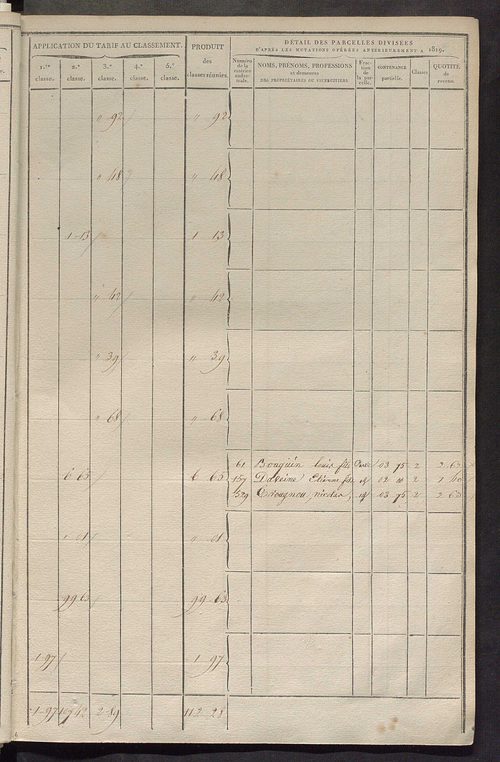 APPLICATION DU TARIF AU CLASSEMENT. PRODUIT des classes réunies. DÉTAIL DES PARCELLES DIVISÉES
D'APRÈS LES MUTATIONS OPÉRÉES ANTÉRIEUREMENT A 1819.
1.re classe. 2.e classe. 3.e classe. 4.e classe. 5.e classe. Numéro de la matrice cadastrale. NOMS, PRÉNOMS, PROFESSIONS et demeures DES PROPRIÉTAIRES OU USUFRUITIERS Fraction de la parcelle. CONTENANCE partielle. Classes QUOTITÉ de revenu.
" 92 " 92
" 48 " 48
1 13 1 13
" 42 " 42
" 39 " 39
" 68 " 68
61 Louis fils 03 75 2 2 63
6 63 6 63
157 Etienne fils 2
529 Nicolas 03 75 2 2 63
" 01 " 01
99 63 99 63
1 97 1 97
1 97 107 42 2 89 112 28